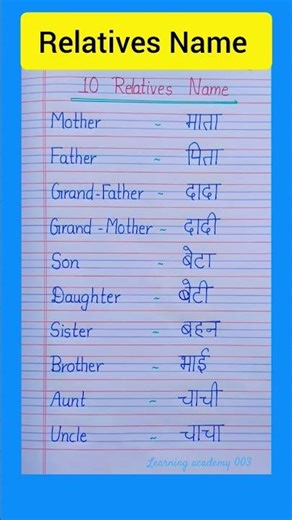 Relatives Name
10 Relatives Name
Mother - माता
Father - पिता
Grand-Father - दादा
Grand-Mother - दादी
Son - बेटा
Daughter - बेटी
Sister - बहन
Brother - भाई
Aunt - चाची
Uncle - चाचा
Learning academy 003